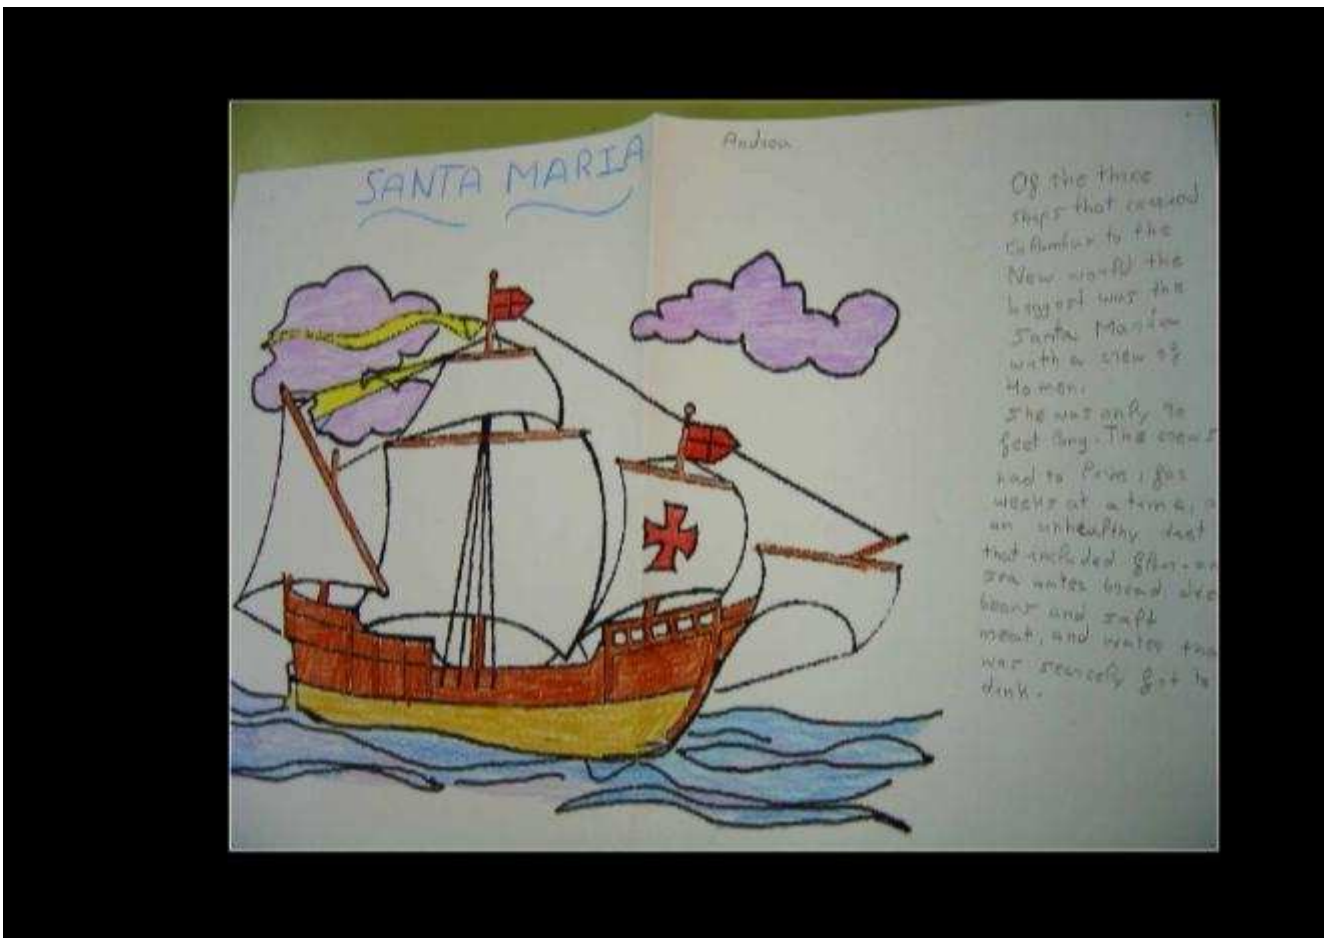 SANTA MARIA
Andrea
Of the three
ships that carried
Columbus to the
New world the
biggest was the
Santa Maria
with a crew of
40 men.
She was only 90
feet long. The crews
had to live, for
weeks at a time,
an unhealthy diet
that included
sea bread
beans and salt
meat, and water
was scarcely fit to
drink.